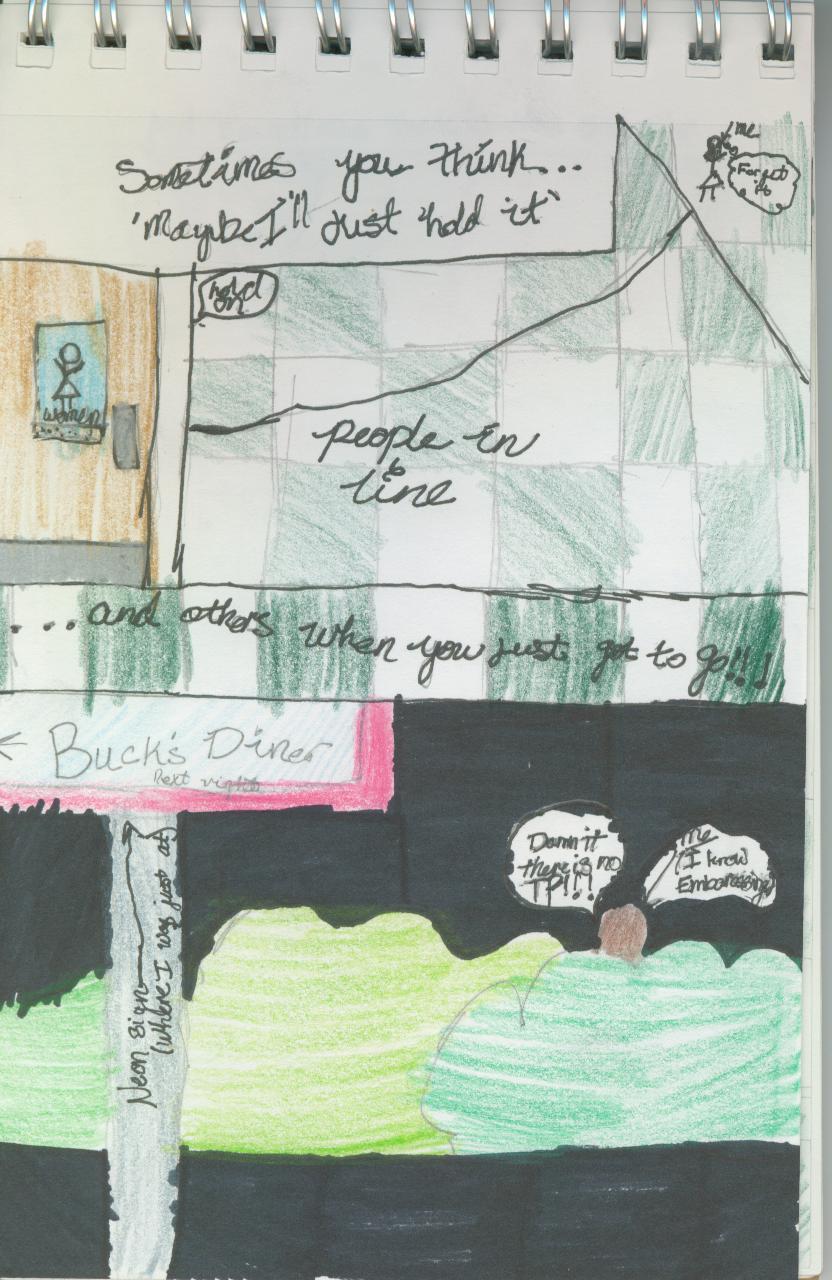 Sometimes you think...
'maybe I'll just 'hold it'
me
Forget it
hold on
women
people in
line
...and others when you just got to go!!!
← Buck's Diner
Next right
Damn it
there is no
TP!!!
me
(I know
Embarassing)
Neon sign
(where I was just at)